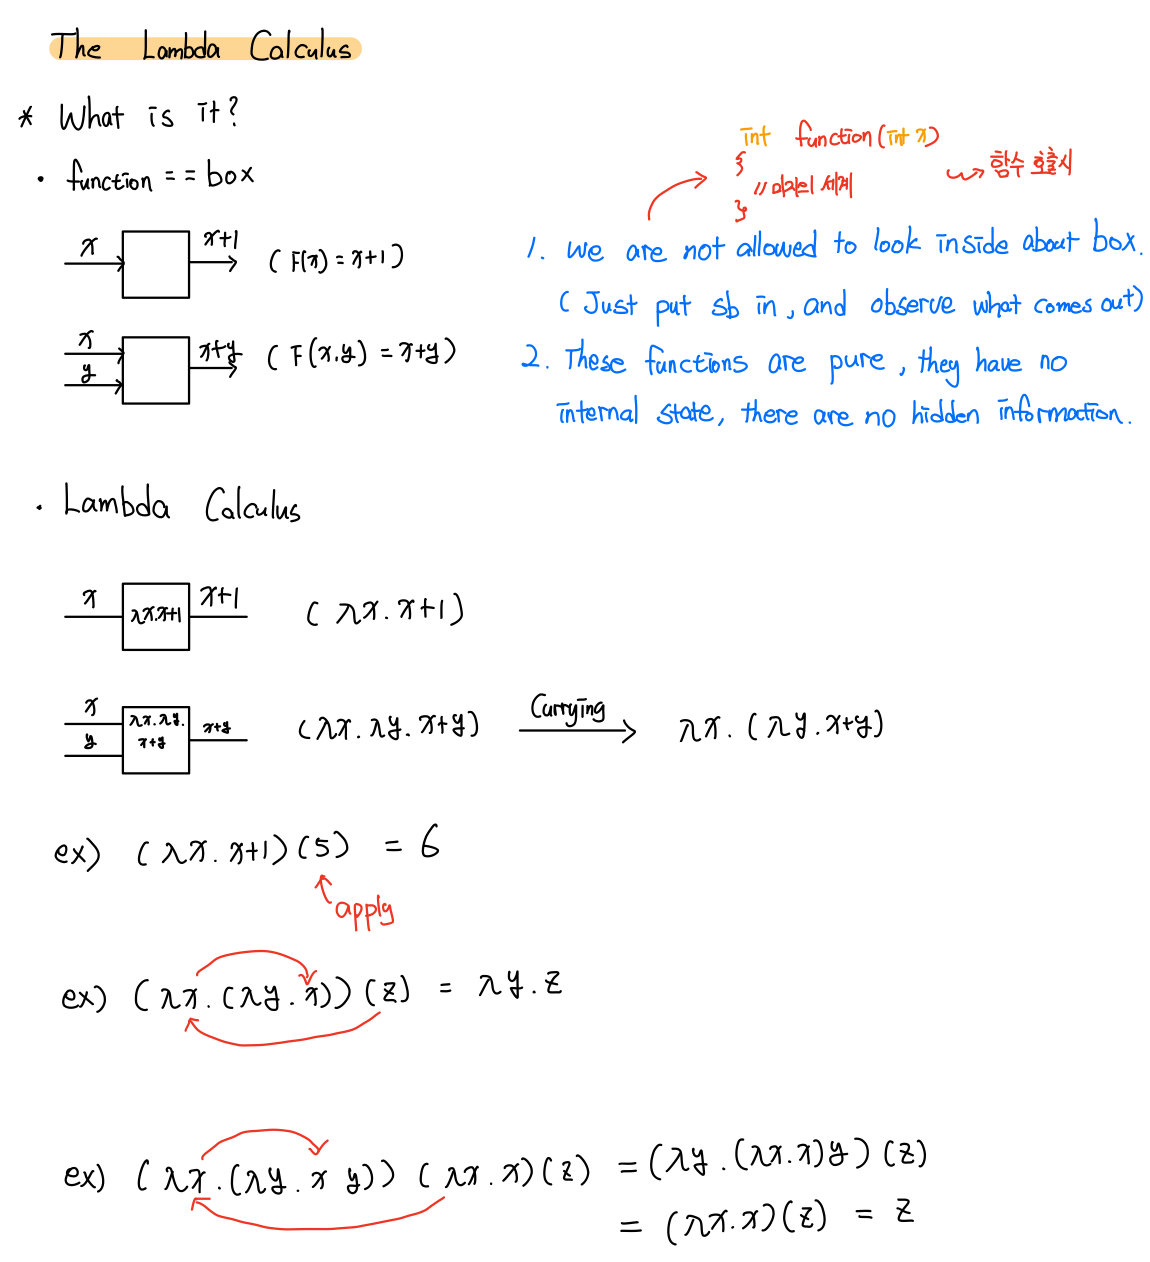 The Lambda Calculus
* What is it?
int function(int x)
{
// 미지의 세계
}
함수 호출시
· function == box
x
x+1
( F(x) = x+1 )
1. we are not allowed to look inside about box.
( Just put sb in, and observe what comes out )
x
y
x+y
( F(x.y) = x+y )
2. These functions are pure, they have no
internal state, there are no hidden information.
· Lambda Calculus
x
λx.x+1
x+1
( λx. x+1 )
x
y
λx. λy.
x+y
x+y
( λx. λy. x+y )
Currying
λx. ( λy. x+y )
ex) ( λx. x+1 ) ( 5 ) = 6
apply
ex) ( λx. ( λy. x ) ) ( z ) = λy. z
ex) ( λx. ( λy. x y ) ) ( λx. x ) ( z ) = ( λy. ( λx. x ) y ) ( z )
= ( λx. x ) ( z ) = z